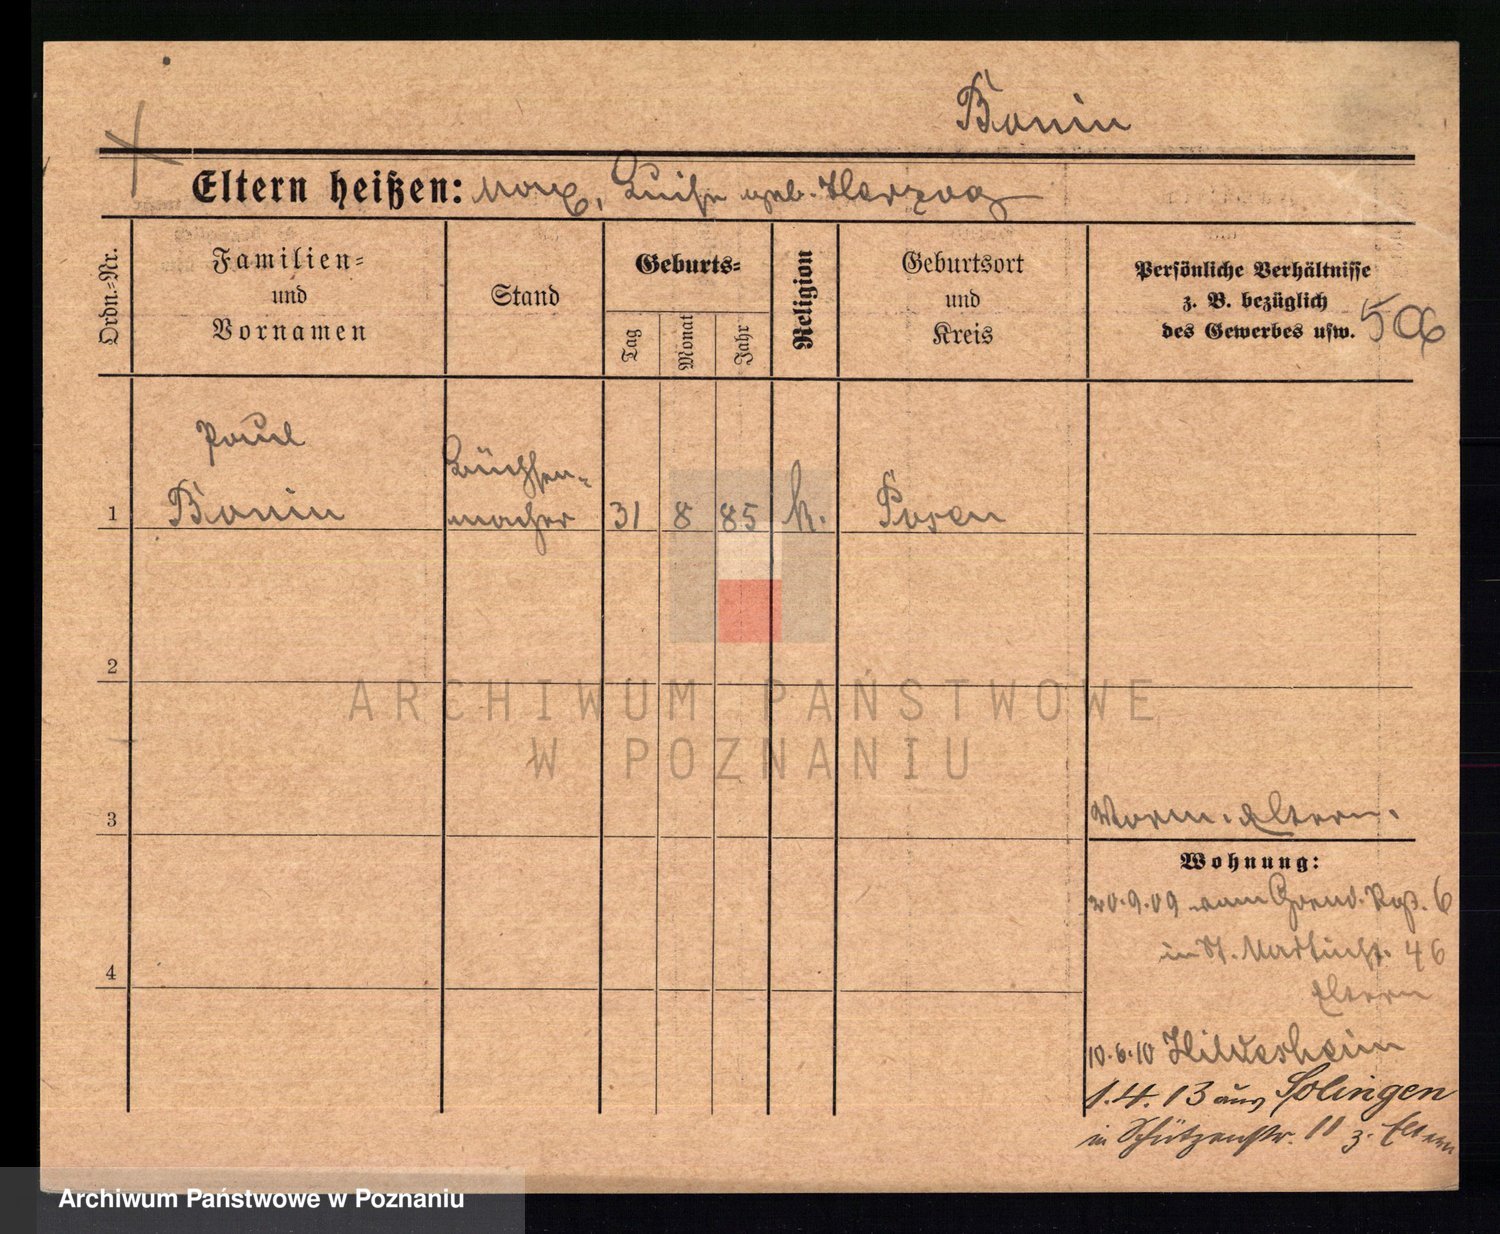 Bonin
Eltern heißen: Max, Luise geb. Herzog
Ordn.-Nr.
Familien=
und
Vornamen
Stand
Geburts=
Tag
Monat
Jahr
Religion
Geburtsort
und
Kreis
Persönliche Verhältnisse
z. B. bezüglich
des Gewerbes usw.
506
Paul
Büchsen-
1 Bonin macher 31 8 85 k. Posen
2
3
4
Eltern.
Wohnung:
20.9.09 6
in St. Martinstr. 46
Eltern
10.6.10 Hildesheim
1.4.13 aus Solingen
in Schützenstr. 11 z. Eltern
ARCHIWUM PAŃSTWOWE
W POZNANIU
Archiwum Państwowe w Poznaniu